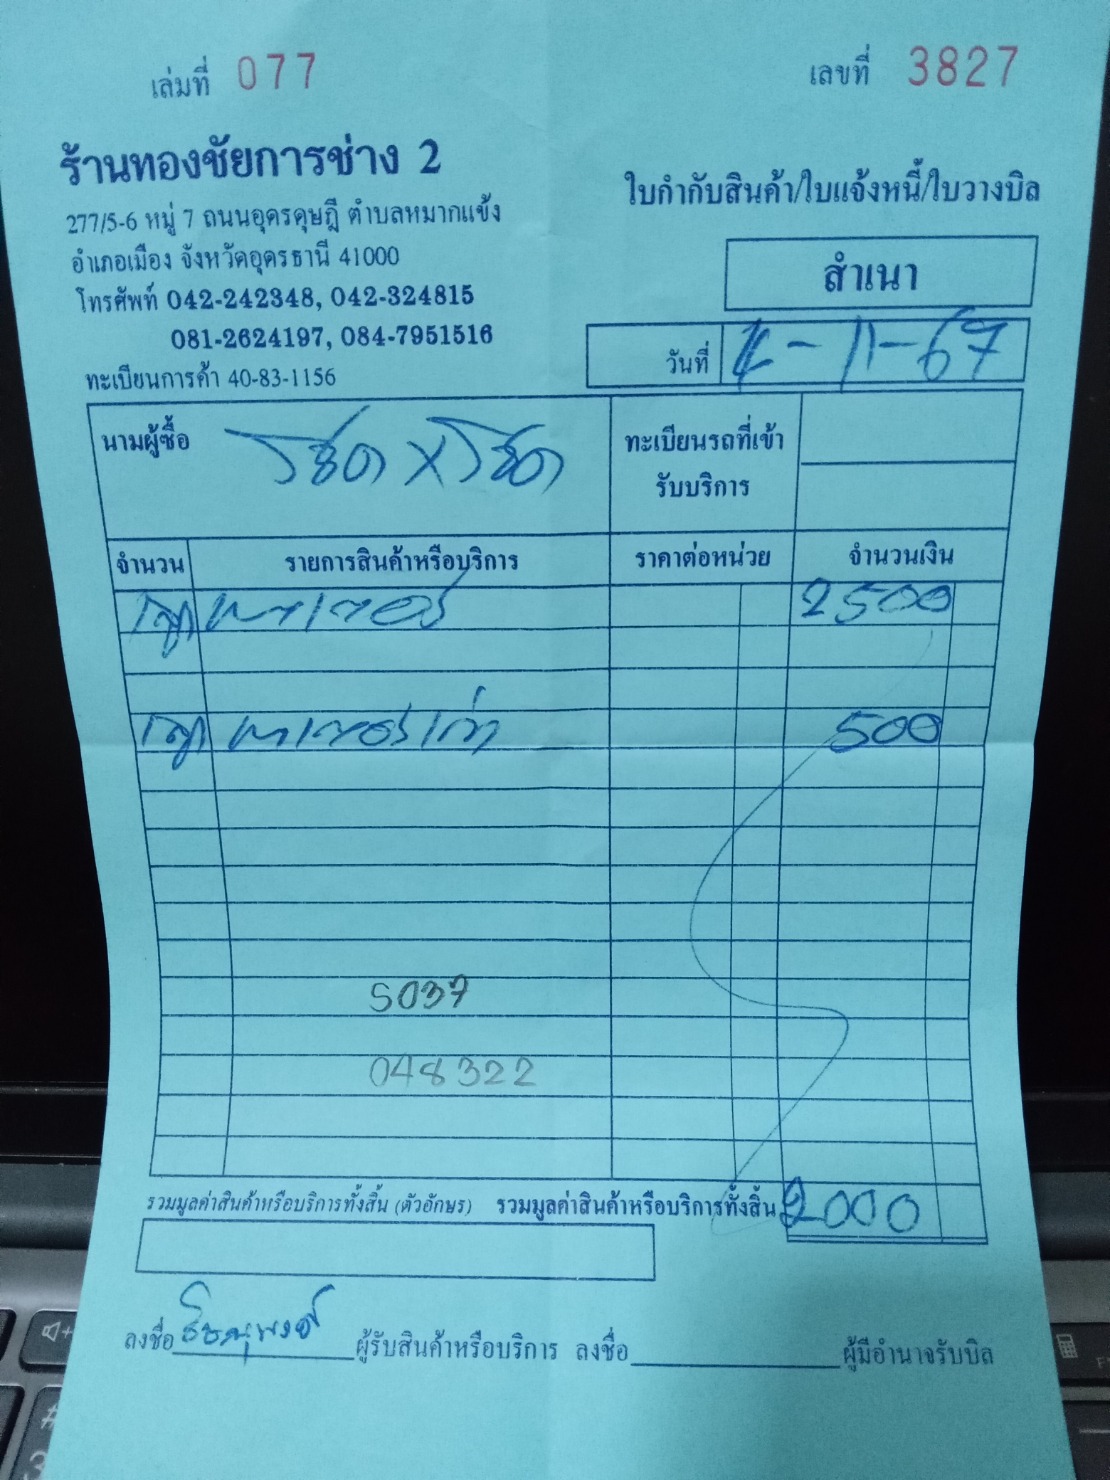 เล่มที่ 077
เลขที่ 3827
ร้านทองชัยการช่าง 2
277/5-6 หมู่ 7 ถนนอุดรดุษฎี ตำบลหมากแข้ง
อำเภอเมือง จังหวัดอุดรธานี 41000
โทรศัพท์ 042-242348, 042-324815
081-2624197, 084-7951516
ทะเบียนการค้า 40-83-1156
ใบกำกับสินค้า/ใบแจ้งหนี้/ใบวางบิล
สำเนา
วันที่ -11-67
นามผู้ซื้อ
ทะเบียนรถที่เข้า
รับบริการ
จำนวน รายการสินค้าหรือบริการ ราคาต่อหน่วย จำนวนเงิน
2500
500
5037
048322
รวมมูลค่าสินค้าหรือบริการทั้งสิ้น (ตัวอักษร) รวมมูลค่าสินค้าหรือบริการทั้งสิ้น 2000
ลงชื่อ ผู้รับสินค้าหรือบริการ ลงชื่อ ผู้มีอำนาจรับบิล